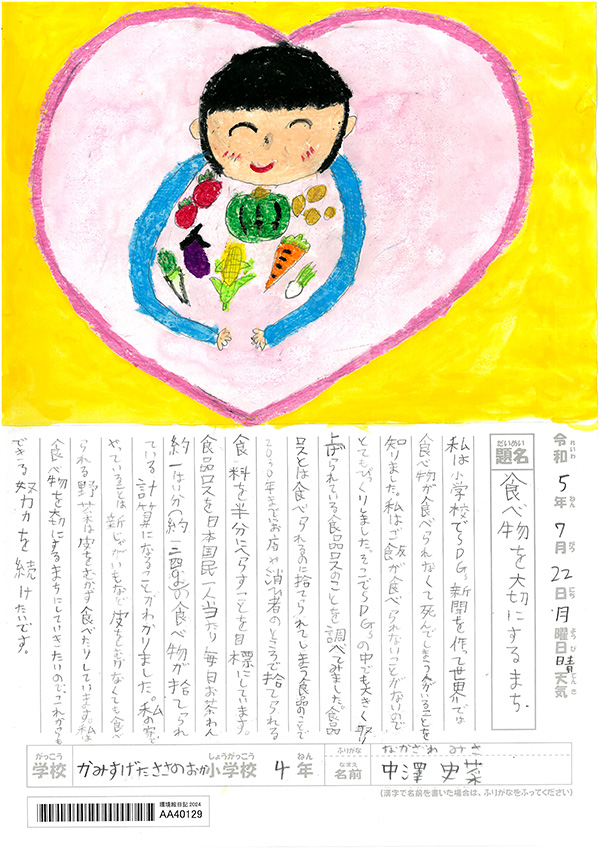 令和5年7月22日月曜日晴天気
れいわ ねん がつ にち ようび てんき
だいめい
題名
食べ物を大切にするまち
私は小学校でSDGs新聞を作って世界では
食べ物が食べられなくて死んでしまう人がいることを
知りました。私はご飯が食べられないことがないので
とてもびっくりしました。そこでSDGsの中でも大きく取り
上げられている食品ロスのことを調べてみました。食品
ロスとは食べられるのに捨てられてしまう食品のことで
2030年までにお店や消ひ者のところで捨てられる
食料を半分にへらすことを目標にしています。
食品ロスを日本国民一人当たり毎日お茶わん
約一はい分(約一二四g)の食べ物が捨てられ
ている計算になることがわかりました。私の家で
やっていることは新じゃがいもなど皮をむかなくても食べ
られる野菜は皮をむかず食べたりしています。私は
食べ物を大切にするまちにしていきたいのでこれからも
できる努力を続けたいです。
がっこう しょうがっこう ねん
学校 かみすげたささのおか小学校 4年
ふりがな なかざわ みさ
なまえ
名前 中澤 史菜
(漢字で名前を書いた場合は、ふりがなをふってください)
環境絵日記 2024
AA40129